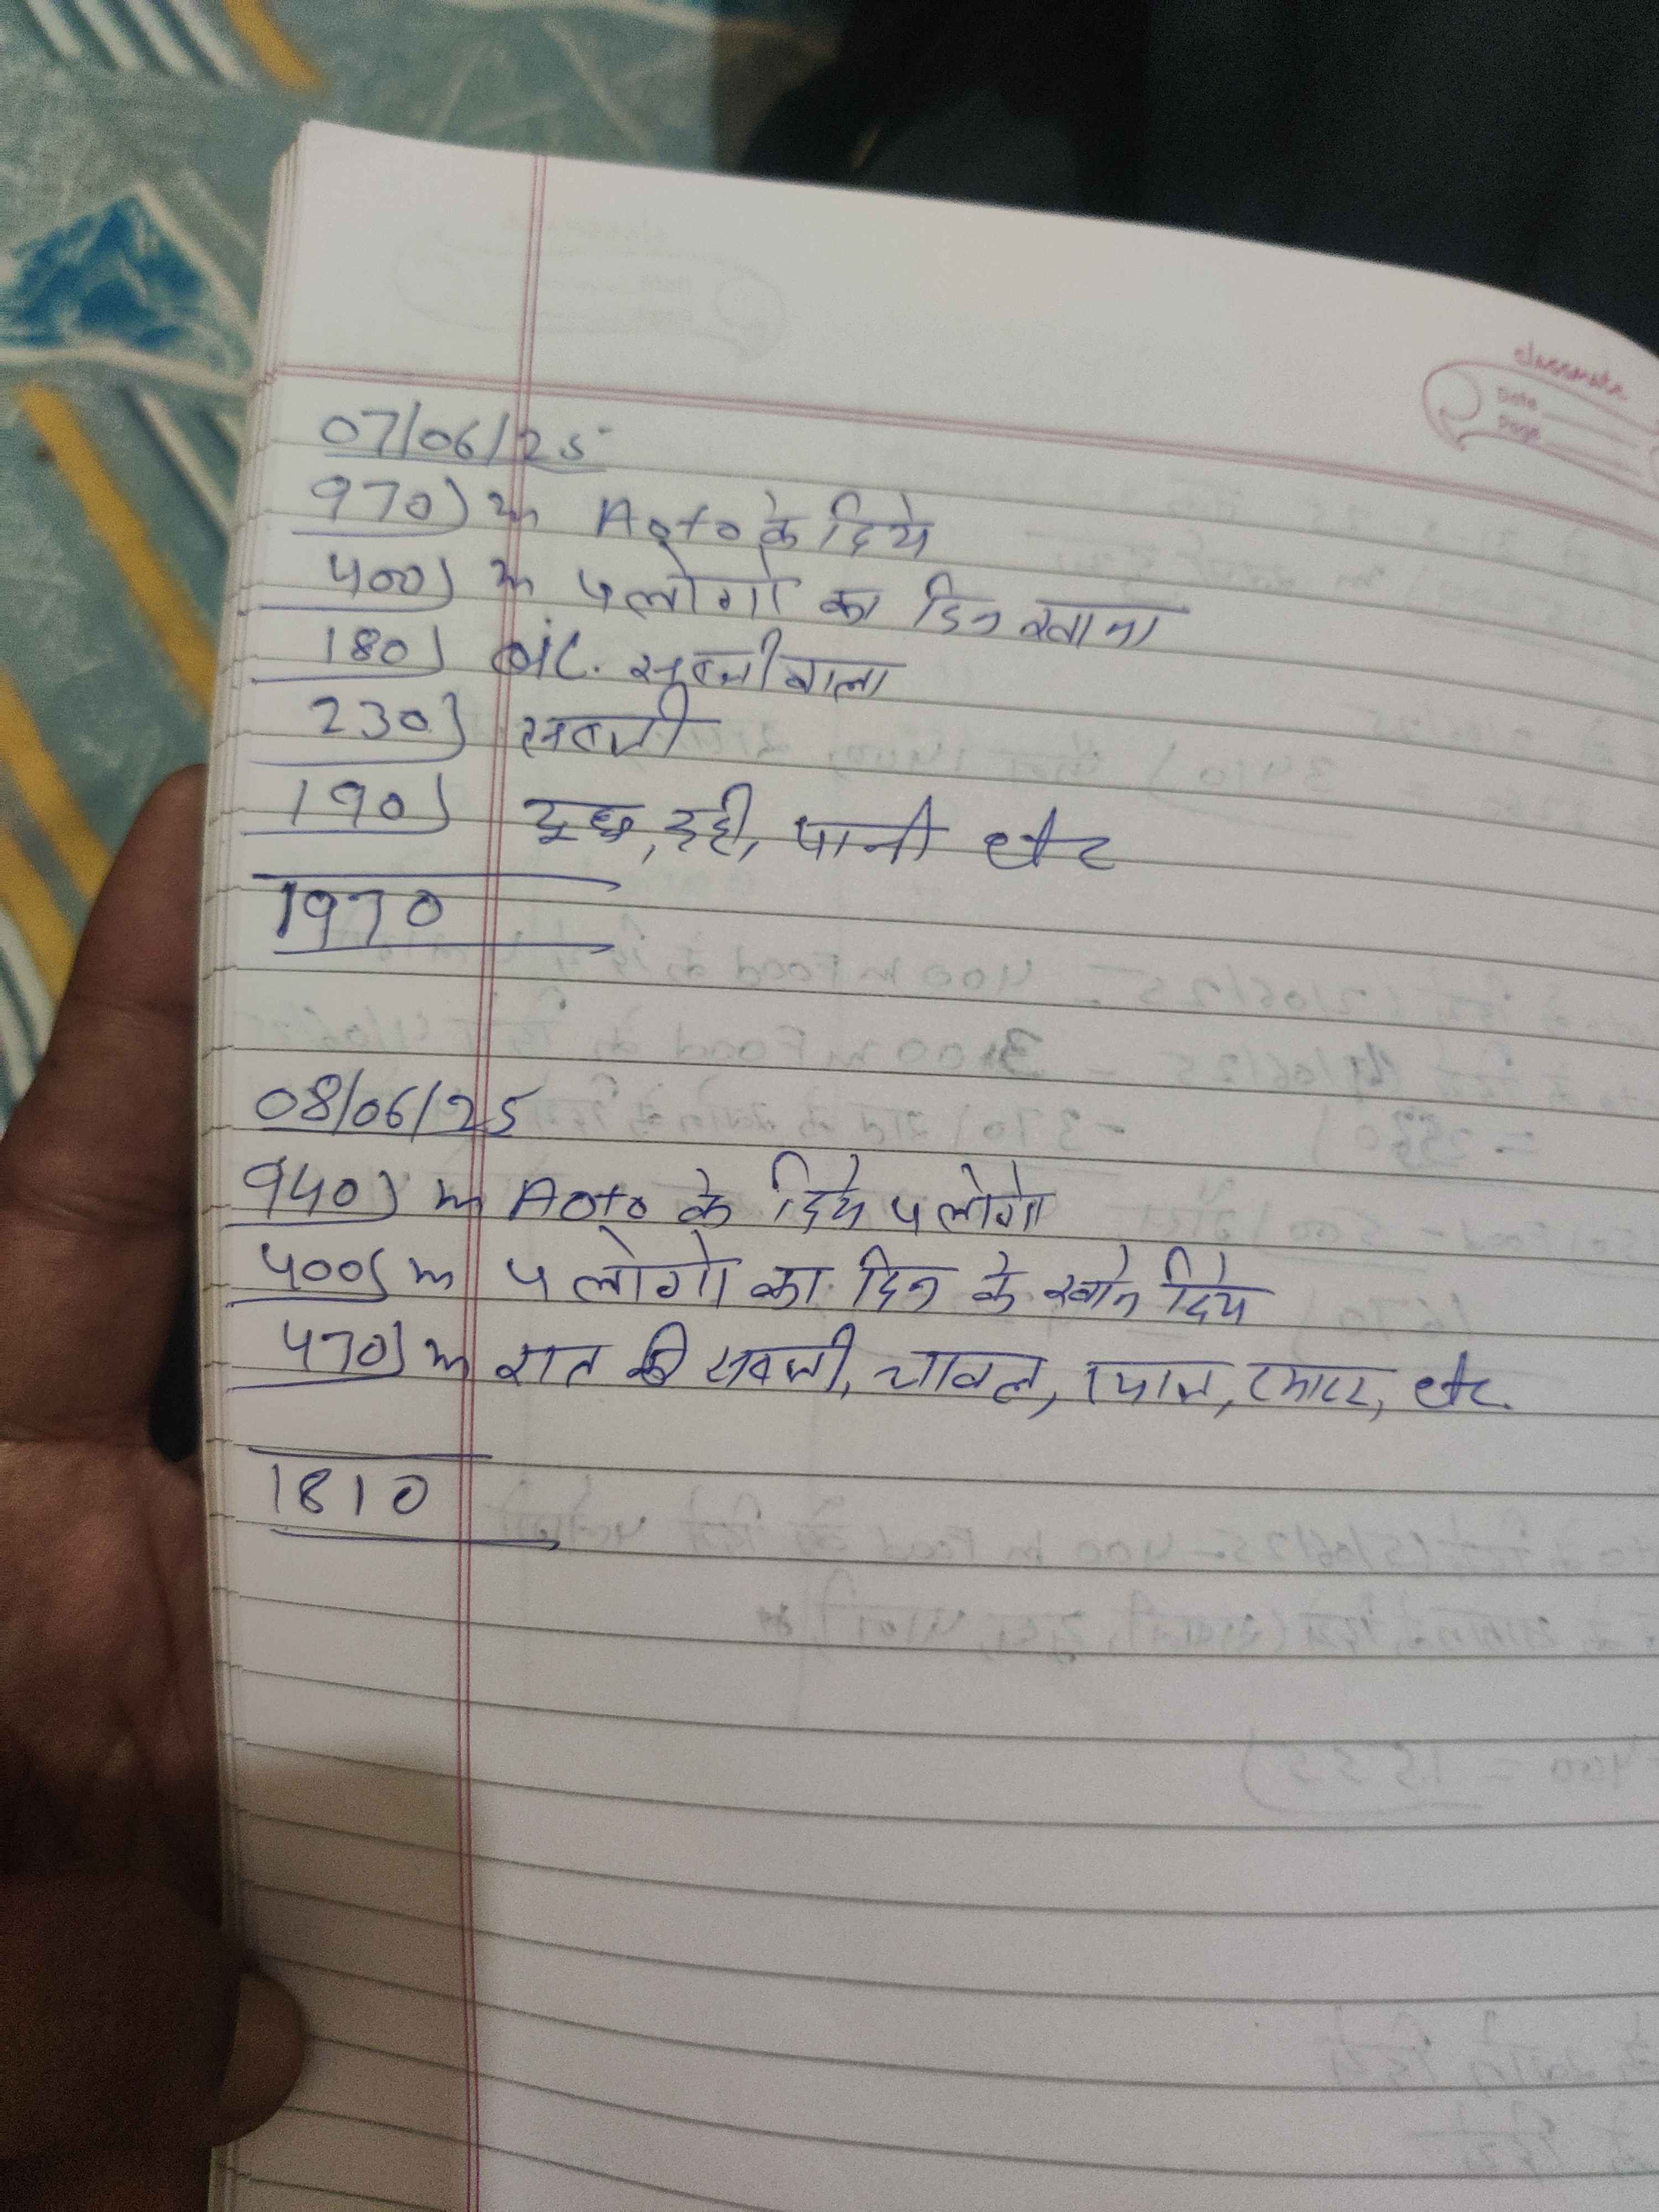 classmate
Date
Page
07/06/25
970) रू Aoto के दिये
400) रू 4 लोगो का दिन खाना
180) सब्जीवाला
230) सब्जी
190) दूध, दही, पानी etc
1970
08/06/25
940) रू Aoto के दिये 4 लोगो
400) रू 4 लोगो का दिन के खाने दिये
470) रू रात की सब्जी, चावल, प्याज, टमाटर, etc.
1810